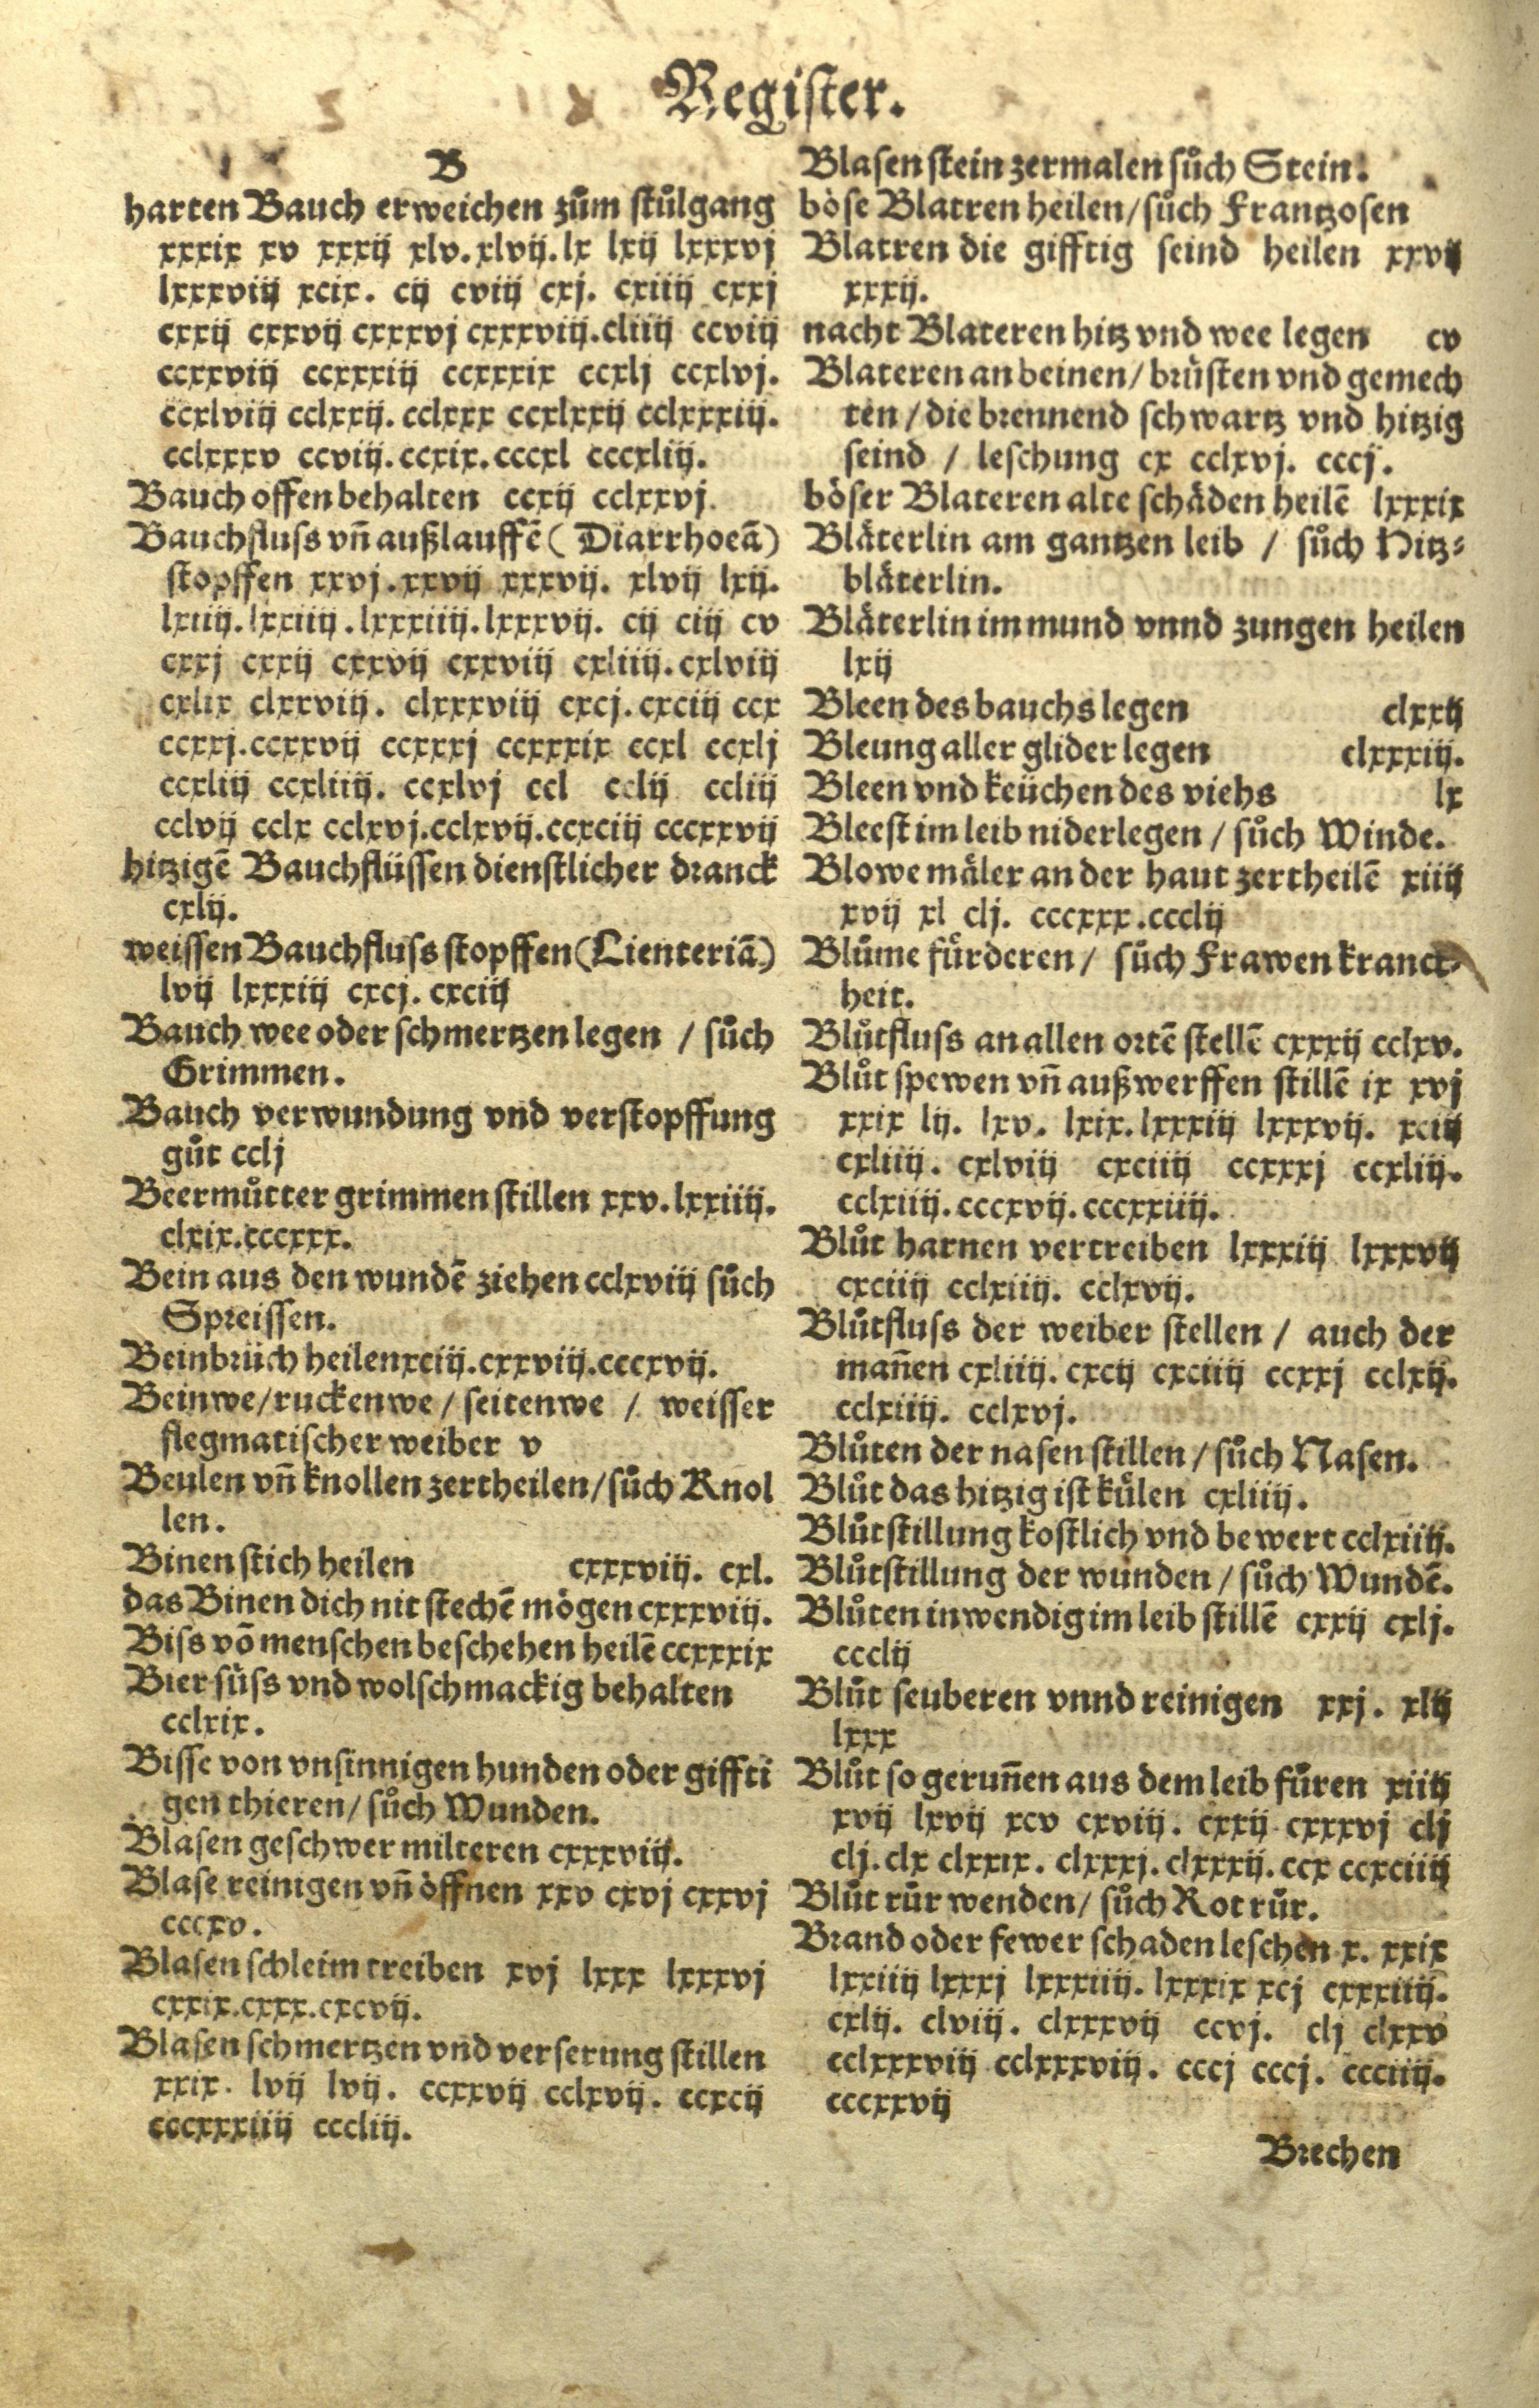 Register.
B
harten Bauch erweichen zům stůlgang
xxxix xv xxxij xlv. xlvij. lx lxij lxxxvj
lxxxviij xcix. cij cviij cxj. cxiiij cxxj
cxxij cxxvij cxxxvj cxxxviij. cliiij ccviij
ccxxviij ccxxxiij ccxxxix ccxlj ccxlvj.
ccxlviij cclxxij. cclxxx ccxlxxij cclxxxiij.
cclxxxv ccviij. ccxix. cccxl cccxliij.
Bauch offen behalten ccxij cclxxvj.
Bauchfluss vn̄ außlauffē (Diarrhoeā)
stopffen xxvj. xxvij xxxvij. xlvij lxij.
lxiiij. lxxiiij. lxxxiiij. lxxxvij. cij ciij cv
cxxj cxxij cxxvij cxxviij cxliiij. cxlviij
cxlix clxxviij. clxxxviij cxcj. cxciij ccx
ccxxj. ccxxvij ccxxxj ccxxxix ccxl ccxlj
ccxliij ccxliiij. ccxlvj ccl cclij ccliij
cclvij cclx cclxvj. cclxvij. ccxciij cccxxvij
hitzigē Bauchflüssen dienstlicher dranck
cxlij.
weissen Bauchfluss stopffen (Lienteriā)
lvij lxxxiij cxcj. cxciij
Bauch wee oder schmertzen legen / sůch
Grimmen.
Bauch verwundung vnd verstopffung
gůt cclj
Beermůtter grimmen stillen xxv. lxxiiij.
clxix. cccxxx.
Bein aus den wundē ziehen cclxviij sůch
Spreissen.
Beinbrüch heilen xciij. cxxviij. cccxvij.
Beinwe / ruckenwe / seitenwe / weisser
flegmatischer weiber v
Beulen vn̄ knollen zertheilen / sůch Knol
len.
Binen stich heilen cxxxviij. cxl.
das Binen dich nit stechē mögen cxxxviij.
Biss vō menschen beschehen heilē ccxxxix
Bier süss vnd wolschmackig behalten
cclxix.
Bisse von vnsinnigen hunden oder giffti
gen thieren / sůch Wunden.
Blasen geschwer milteren cxxxviij.
Blase reinigen vn̄ öffnen xxv cxvj cxxvj
cccxv.
Blasen schleim treiben xvj lxxx lxxxvj
cxxix. cxxx. cxcvij.
Blasen schmertzen vnd verserung stillen
xxix. lvij lvij. ccxxvij cclxvij. ccxcij
cccxxxiiij cccliij.
Blasen stein zermalen sůch Stein.
böse Blatren heilen / sůch Frantzosen
Blatren die gifftig seind heilen xxvij
xxxij.
nacht Blateren hitz vnd wee legen cv
Blateren an beinen / brüsten vnd gemech
ten / die brennend schwartz vnd hitzig
seind / leschung cx cclxvj. cccj.
böser Blateren alte schäden heilē lxxxix
Bläterlin am gantzen leib / sůch Hitz-
bläterlin.
Bläterlin im mund vnnd zungen heilen
lxij
Bleen des bauchs legen clxxij
Bleung aller glider legen clxxxiij.
Bleen vnd keüchen des viehs lx
Bleest im leib niderlegen / sůch Winde.
Blowe mäler an der haut zertheilē xiiij
xvij xl clj. cccxxx. ccclij
Blůme fürderen / sůch Frawen kranck-
heit.
Blůtfluss an allen ortē stellē cxxxij cclxv.
Blůt spewen vn̄ außwerffen stillē ix xvj
xxix lij. lxv. lxix. lxxxiij lxxxvij. xciij
cxliiij. cxlviij cxciiij ccxxxj ccxliij.
cclxiiij. cccxvij. cccxxiiij.
Blůt harnen vertreiben lxxxiij lxxxvij
cxciiij cclxiiij. cclxvij.
Blůtfluss der weiber stellen / auch der
mañen cxliiij. cxcij cxciiij ccxxj cclxij.
cclxiiij. cclxvj.
Blůten der nasen stillen / sůch Nasen.
Blůt das hitzig ist kůlen cxliiij.
Blůtstillung kostlich vnd bewert cclxiiij.
Blůtstillung der wunden / sůch Wundē.
Blůten inwendig im leib stillē cxxij cxlj.
ccclij
Blůt seuberen vnnd reinigen xxj. xlij
lxxx
Blůt so geruñen aus dem leib fůren xiiij
xvij lxvij xcv cxviij. cxxij cxxxvj clj
clj. clx clxxix. clxxxj. clxxxij. ccx ccxciiij
Blůt růr wenden / sůch Rot růr.
Brand oder fewer schaden leschen x. xxix
lxxiiij lxxxj lxxxiiij. lxxxix xcj cxxxiiij.
cxlij. clviij. clxxxvij ccvj. clj clxxv
cclxxxviij cclxxxviij. cccj cccj. ccciiij.
cccxxvij
Brechen